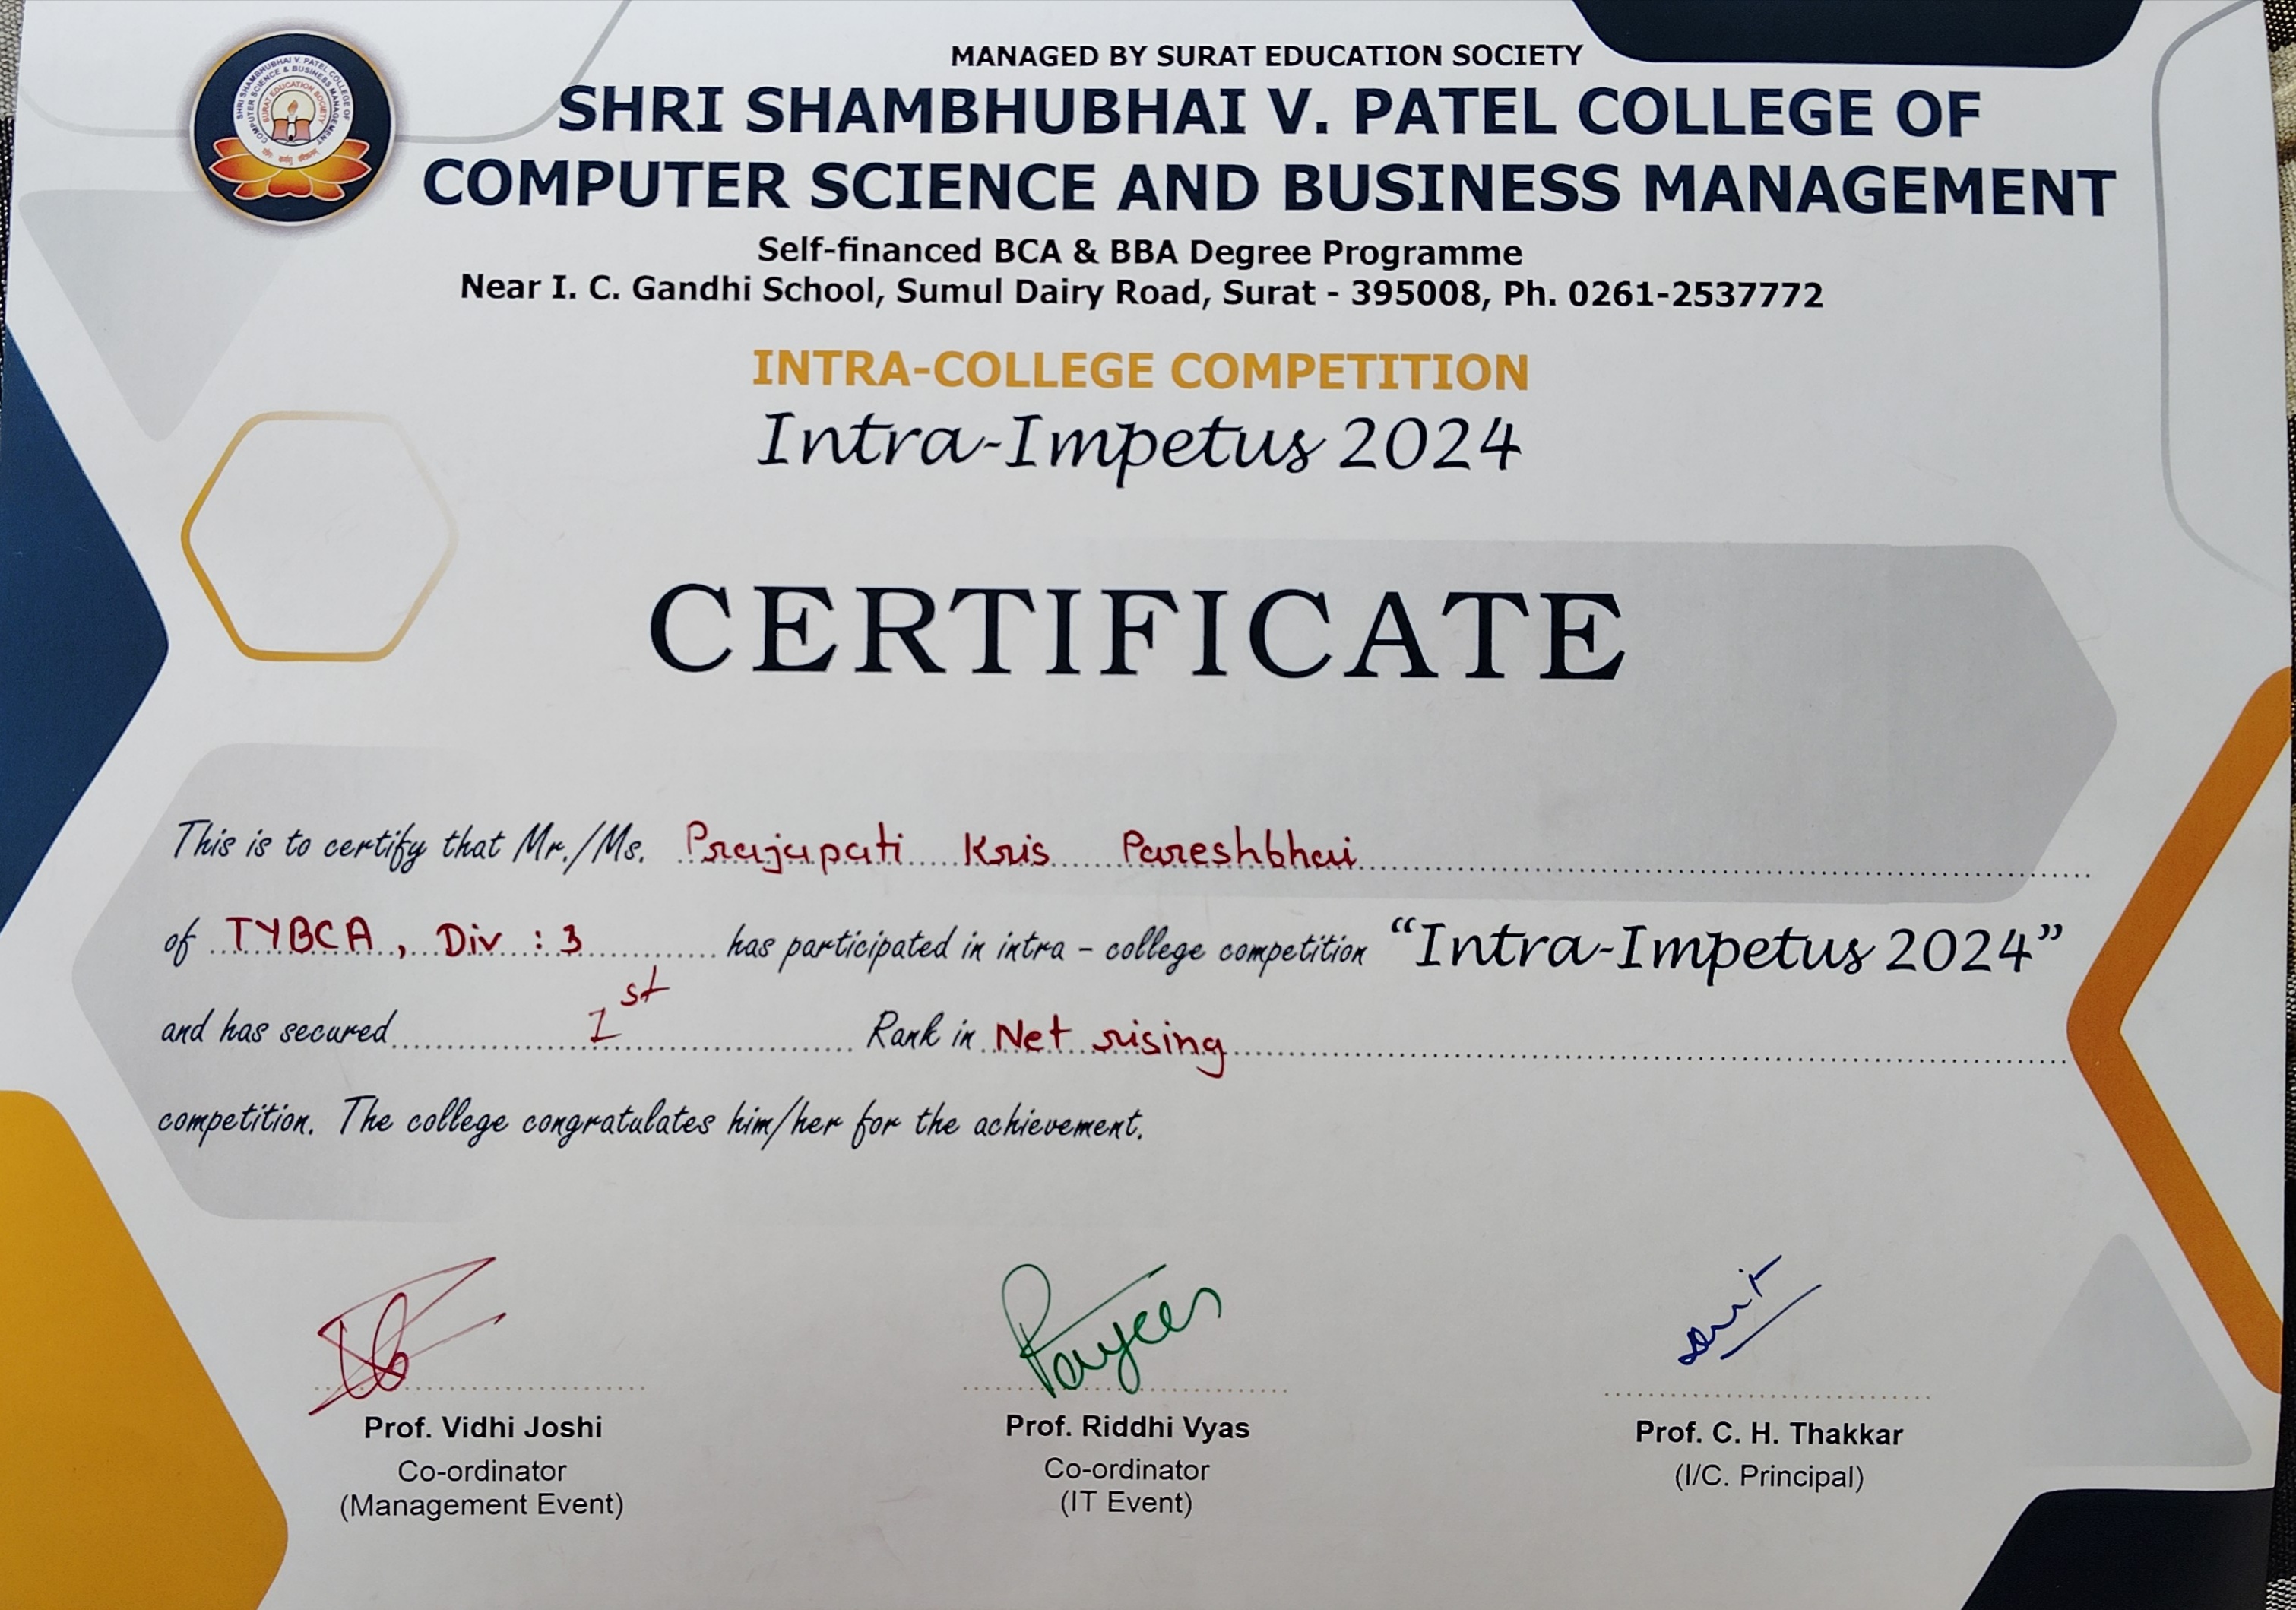 MANAGED BY SURAT EDUCATION SOCIETY
SHRI SHAMBHUBHAI V. PATEL COLLEGE OF
COMPUTER SCIENCE AND BUSINESS MANAGEMENT
SHRI SHAMBHUBHAI V. PATEL COLLEGE OF
COMPUTER SCIENCE & BUSINESS MANAGEMENT
SURAT EDUCATION SOCIETY
Self-financed BCA & BBA Degree Programme
Near I. C. Gandhi School, Sumul Dairy Road, Surat - 395008, Ph. 0261-2537772
INTRA-COLLEGE COMPETITION
Intra-Impetus 2024
CERTIFICATE
This is to certify that Mr./Ms. Prajapati Kris Pareshbhai
of TYBCA, Div : 3 has participated in intra - college competition “Intra-Impetus 2024”
and has secured 1st Rank in Net rising
competition. The college congratulates him/her for the achievement.
Prof. Vidhi Joshi
Co-ordinator
(Management Event)
Prof. Riddhi Vyas
Co-ordinator
(IT Event)
Prof. C. H. Thakkar
(I/C. Principal)